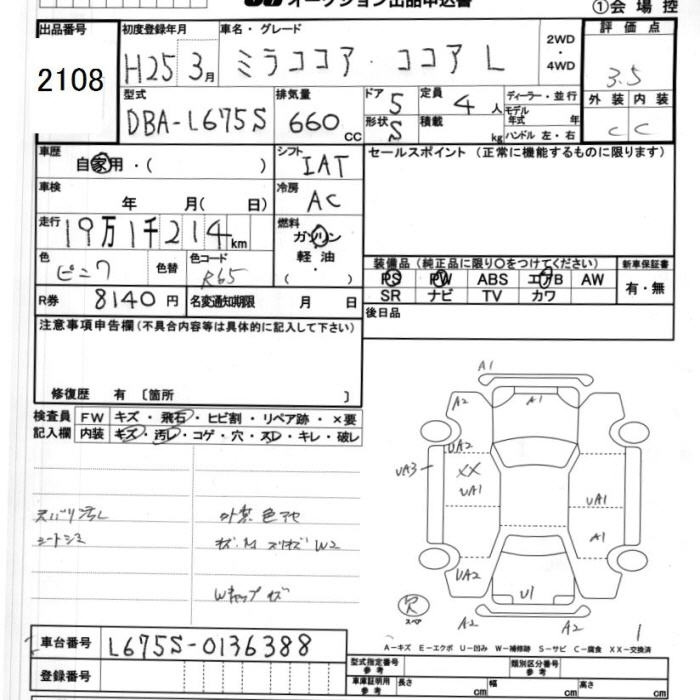 オークション出品申込書
①会場控
出品番号
2108
初度登録年月
H25 3月
車名・グレード
ミラココア・ココア L
2WD
・
4WD
評価点
3.5
型式
DBA-L675S
排気量
660 cc
ドア 5
形状 S
定員 4 人
積載 kg
ディーラー・並行
モデル年式 年
ハンドル 左・右
外装 内装
C C
車歴
自家用・( )
シフト
IAT
セールスポイント (正常に機能するものに限ります)
車検
年 月( 日)
冷房
AC
走行
19万1千214km
燃料
ガソリン
軽油
・
( )
色
ピンク
色替
色コード
R65
装備品 (純正品に限り〇をつけてください)
新車保証書
PS PW ABS エアB AW
有・無
SR ナビ TV カワ
R券 8140円
名変通知期限 月 日
後日品
注意事項申告欄 (不具合内容等は具体的に記入して下さい)
修復歴 有 〔箇所 〕
検査員
記入欄
FW キズ・飛石・ヒビ割・リペア跡・×要
内装 キズ・汚レ・コゲ・穴・スレ・キレ・破レ
シートシミ
外装色アセ
W2
Wキャップ キズ
A1
A2
A1
A2
UA2
UA3
XX
UA1
UA1
A1
UA2
U1
欠
スペア
A2
A2
1
A-キズ E-エクボ U-凹み W-補修跡 S-サビ C-腐食 XX-交換済
車台番号
L675S-0136388
登録番号
型式指定番号
参考
類別区分番号
参考
車庫証明用
参考
長さ cm
幅 cm
高さ cm